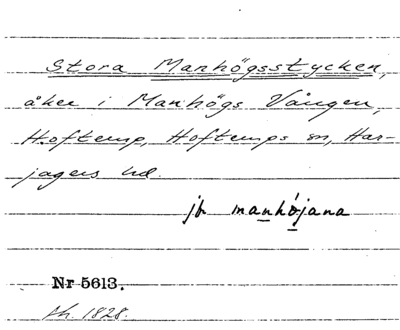 Stora Manhögsstycken,
åker i Manhögs Vången,
Hofterup, Hofterups sn, Har-
jagers hd.
jfr manhöjana
Nr 5613.
th. 1828.